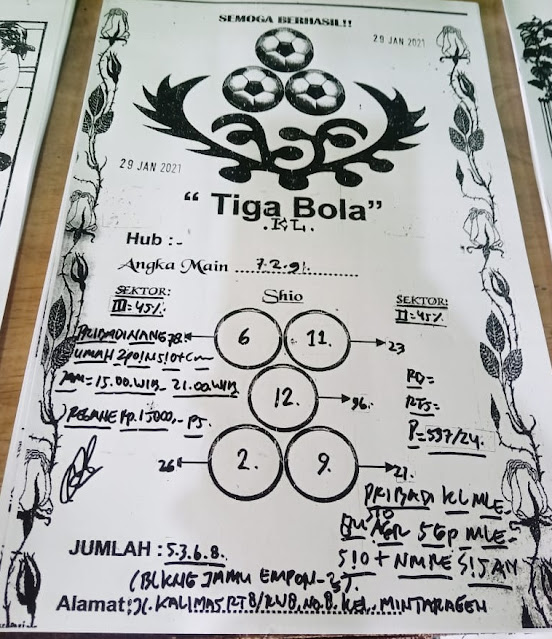 SEMOGA BERHASIL!!
29 JAN 2021
29 JAN 2021
“ Tiga Bola”
.KL.
Hub :-
Angka Main ...7.2.9!...
SEKTOR:
III=45%
Shio
SEKTOR:
II=45%
6
11.
23
12.
96.
2.
9.
26
21.
JAM=15.00.WIB 21.00.WIB
Rp.15000,-
P=597/24.
PRIBADI KL MLE
JUMLAH : 5.3.6.8.
(BLKNG JAMU EMPON-2).
Alamat: JL. KALIMAS RT8/RW8.No.8. KEL. MINTARAGEN